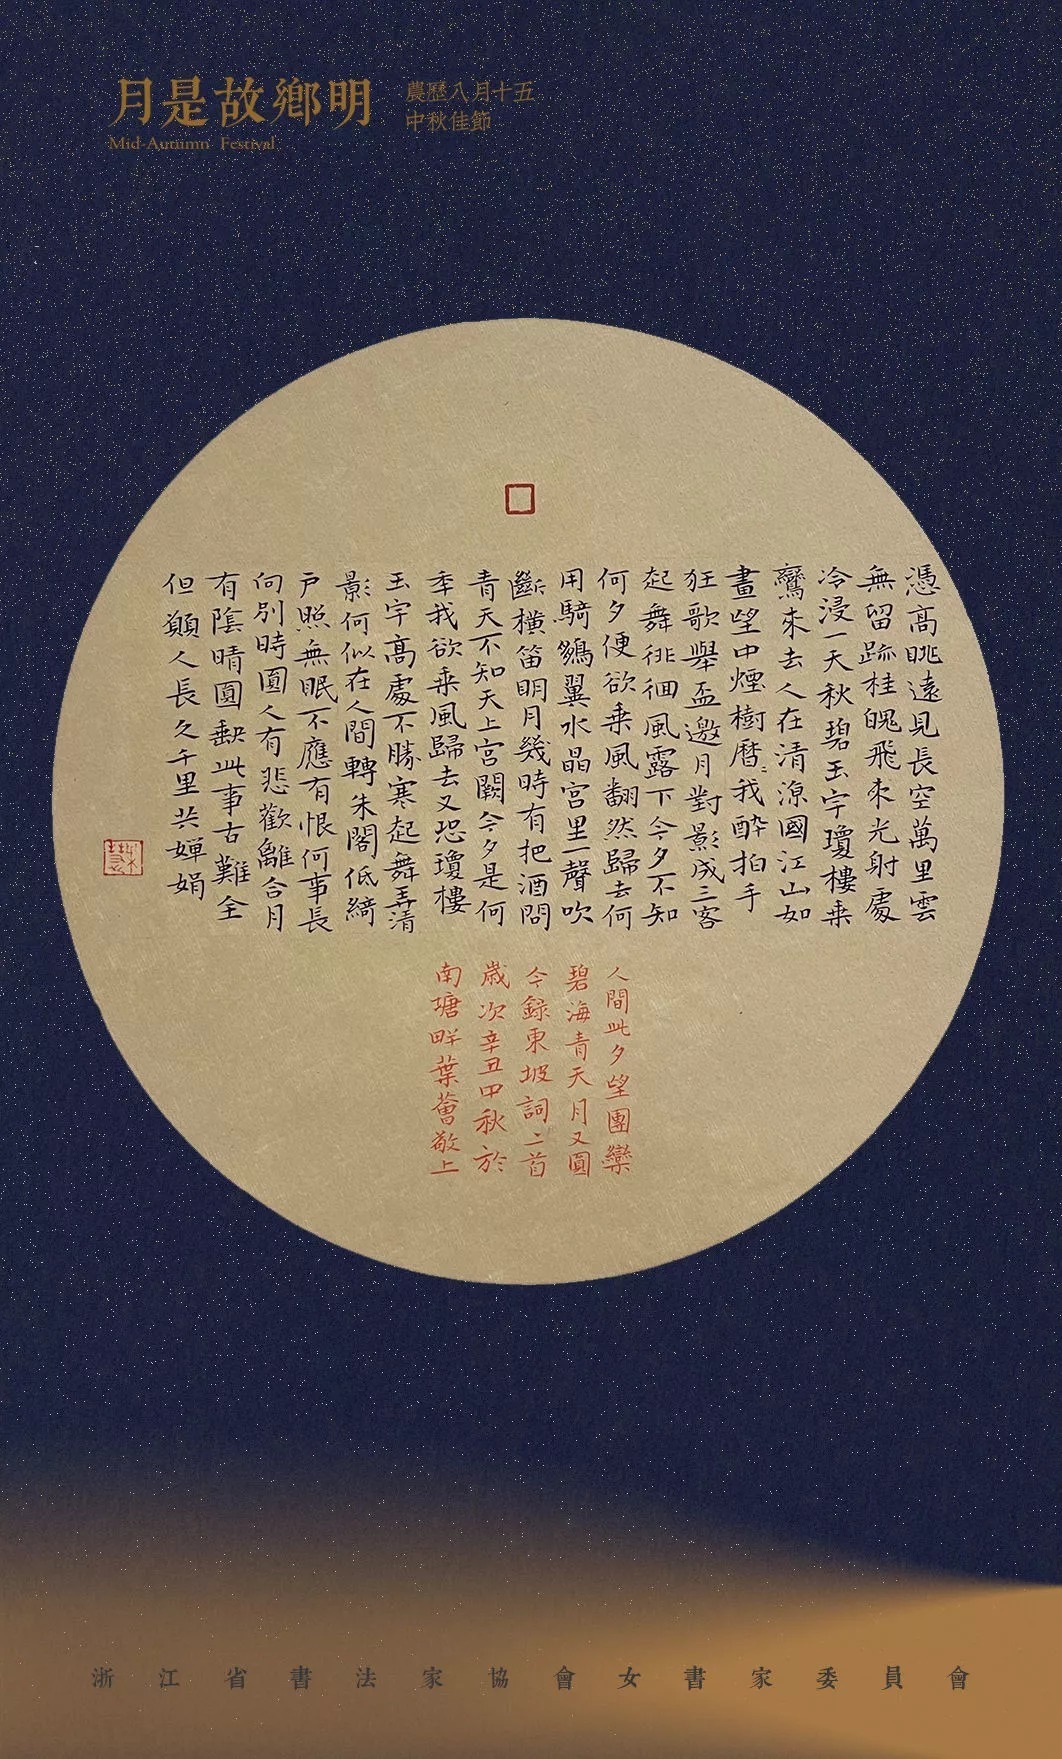 月是故鄉明
Mid-Autumn Festival
農歷八月十五
中秋佳節
憑高眺遠見長空萬里雲
無留跡桂魄飛來光射處
冷浸一天秋碧玉宇瓊樓乘
鸞來去人在清涼國江山如
畫望中煙樹曆〻我醉拍手
狂歌舉盃邀月對影成三客
起舞徘徊風露下今夕不知
何夕便欲乘風翻然歸去何
用騎鵬翼水晶宮里一聲吹
斷橫笛明月幾時有把酒問
青天不知天上宮闕今夕是何
年我欲乘風歸去又恐瓊樓
玉宇高處不勝寒起舞弄清
影何似在人間轉朱閣低綺
戶照無眠不應有恨何事長
向別時圓人有悲歡離合月
有陰晴圓缺此事古難全
但願人長久千里共嬋娟
人間此夕望團欒
碧海青天月又圓
今録東坡詞二首
歲次辛丑中秋於
南塘畔葉薈敬上
浙江省書法家協會女書家委員會